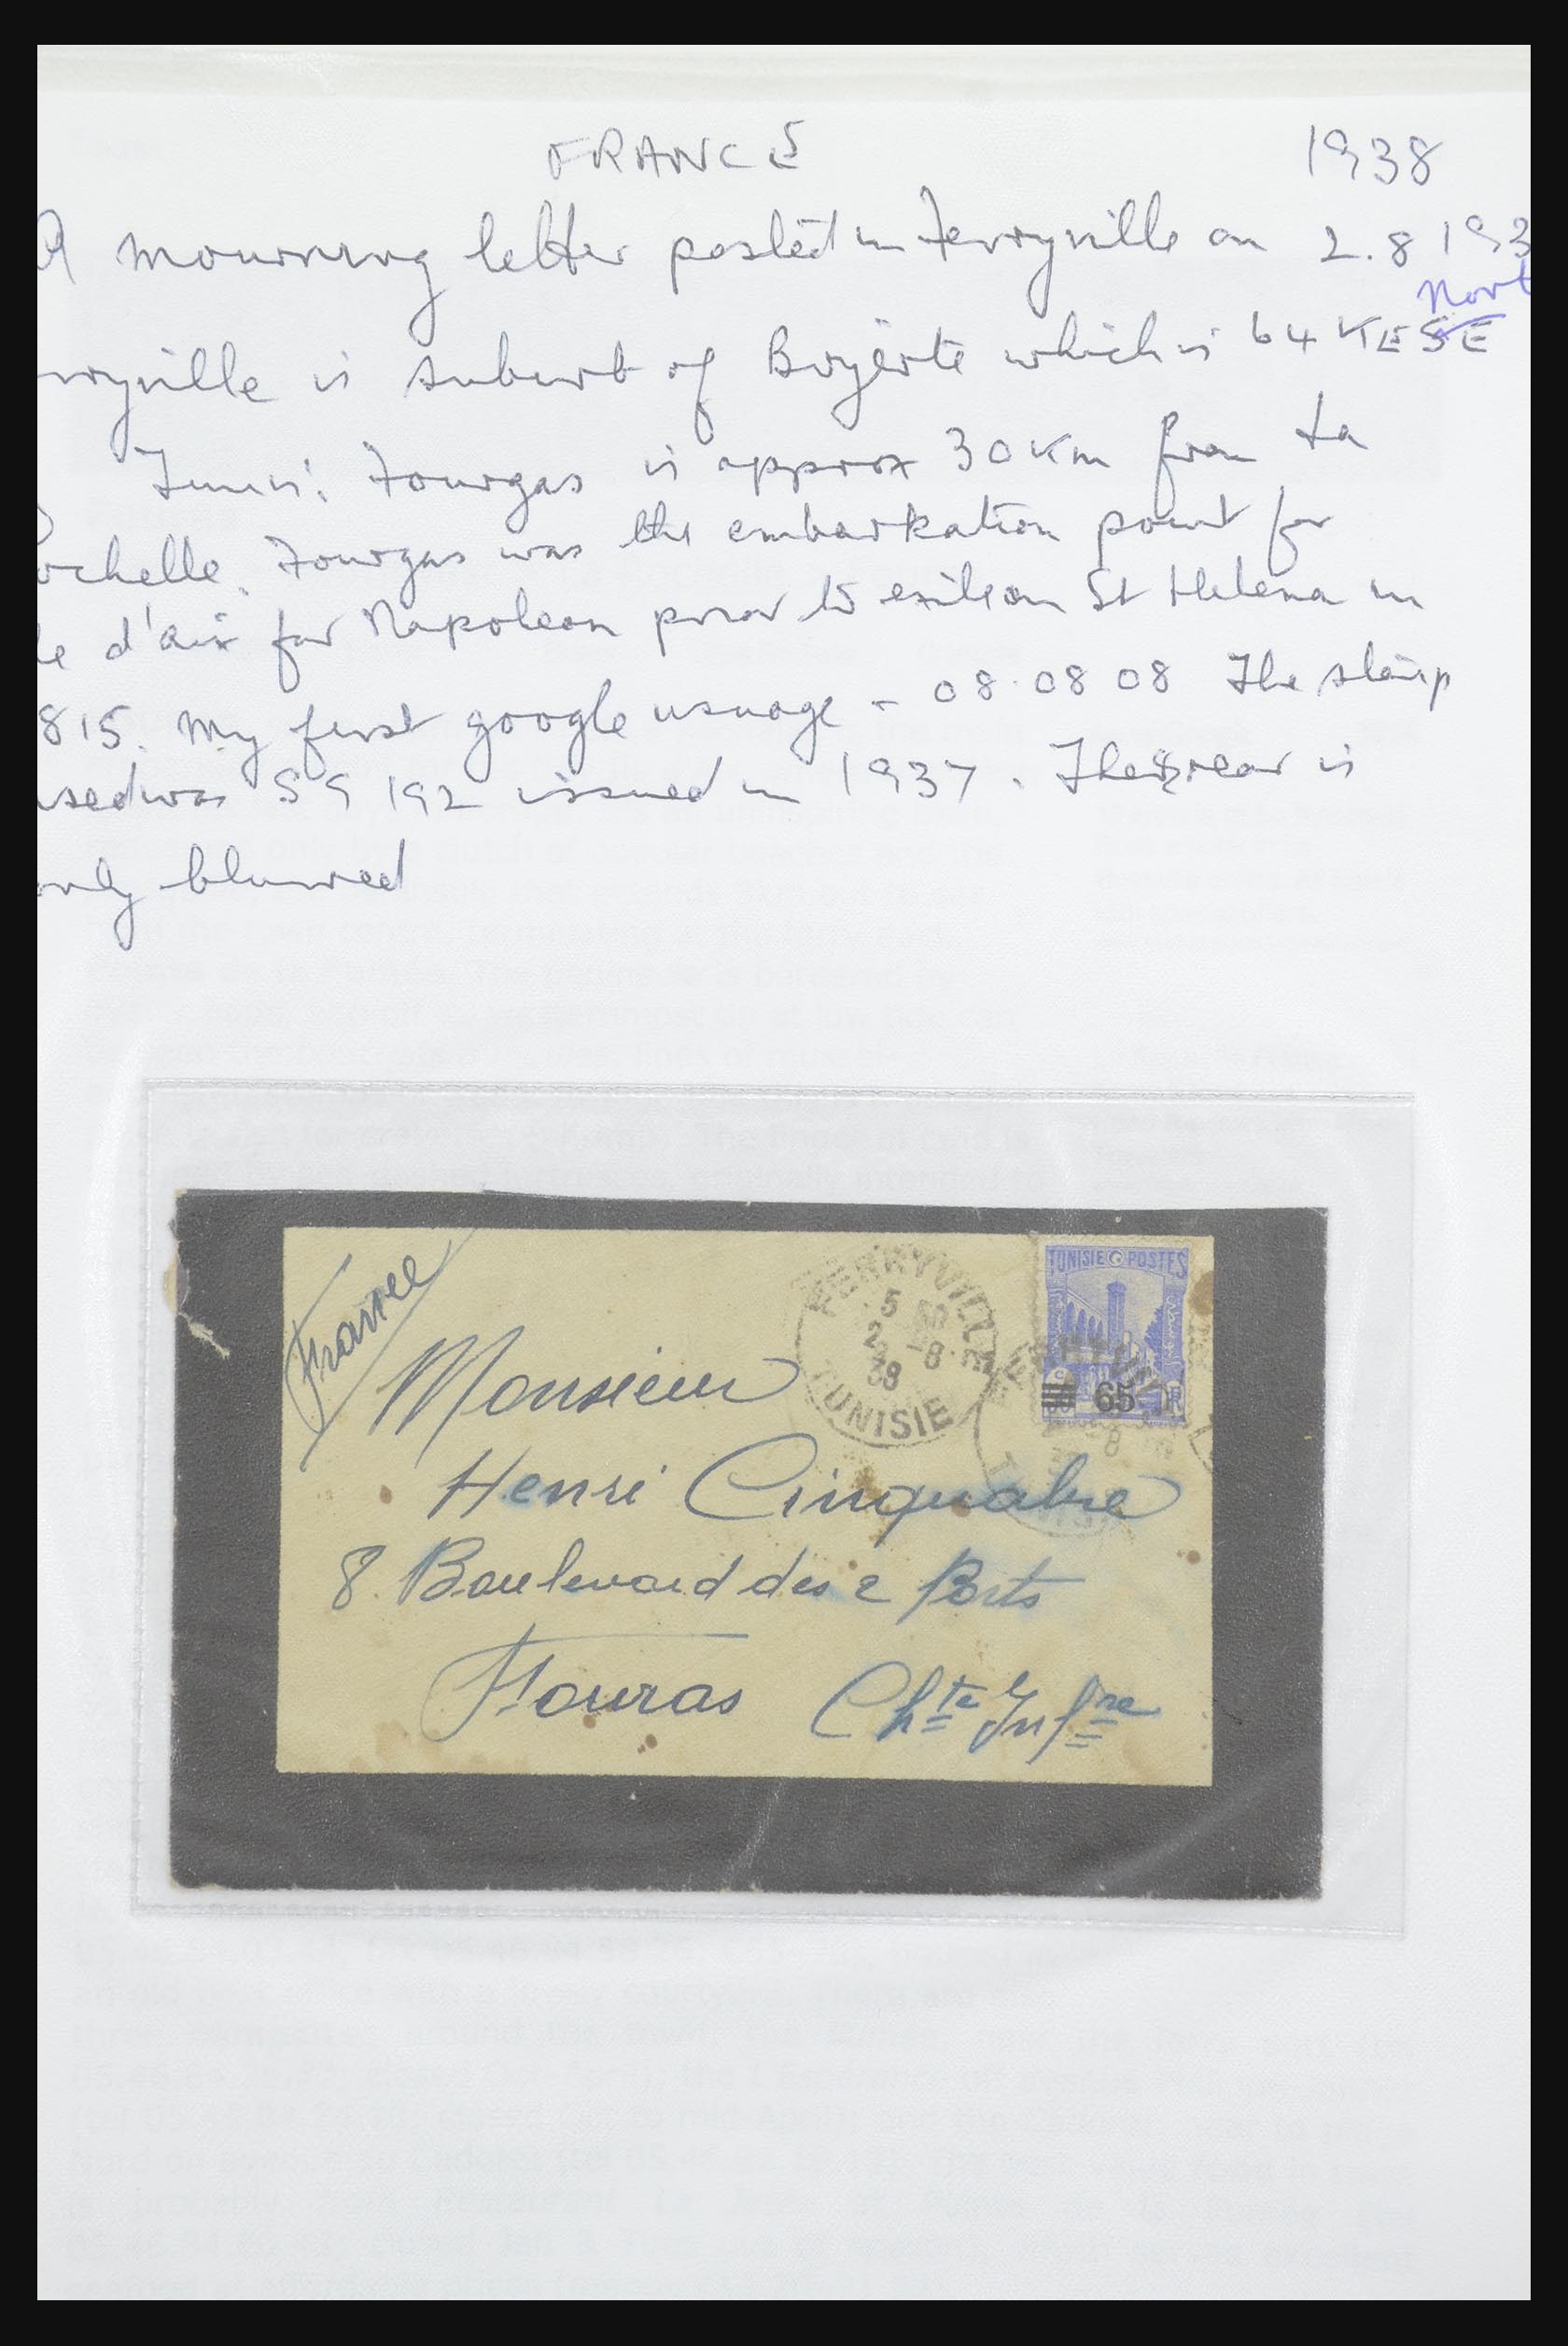 FRANCE 1938
A mourning letter posted in Ferryville on 2.8 193
Nort
rryville is suburb of which is 64 K SE
Tunis. Fourgas is approx 30 Km from La
ochelle. Fourgas was the embarkation point for
le d'aix for Napoleon prior to exile on St Helena in
815. My first google usuage - 08.08 08 The stamp
used was SG 192 issued in 1937. The rear is
only blurred
France
FERRYVILLE
5
2 -8
38
TUNISIE
TUNISIE POSTES
65
Monsieur
Henri Cinquabre
8 Boulevard des 2 Ports
Fouras Chte Infre